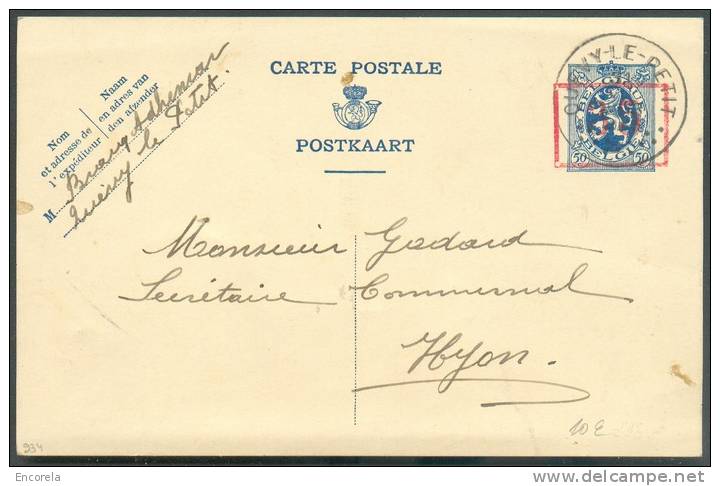 CARTE POSTALE
POSTKAART
Nom
et adresse de
l'expéditeur
Naam
en adres van
den afzender
M
Quévy le Petit.
QUEVY-LE-PETIT
BELGIQUE
BELGIË
50 50
Monsieur Godard
Secrétaire Communal
Hyon.
934
10 E
Encorela
delcampe.net